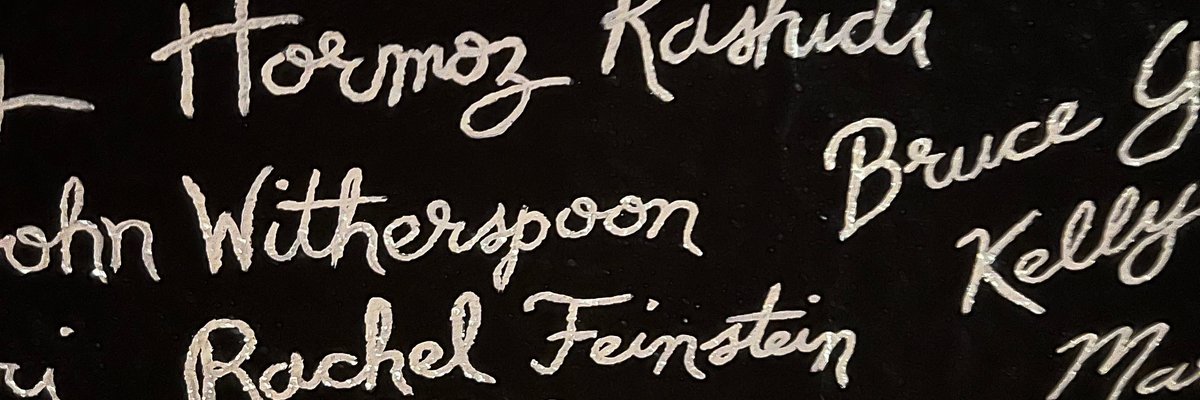 Hormoz Rashidi
Bruce
John Witherspoon
Kelly
Rachel Feinstein